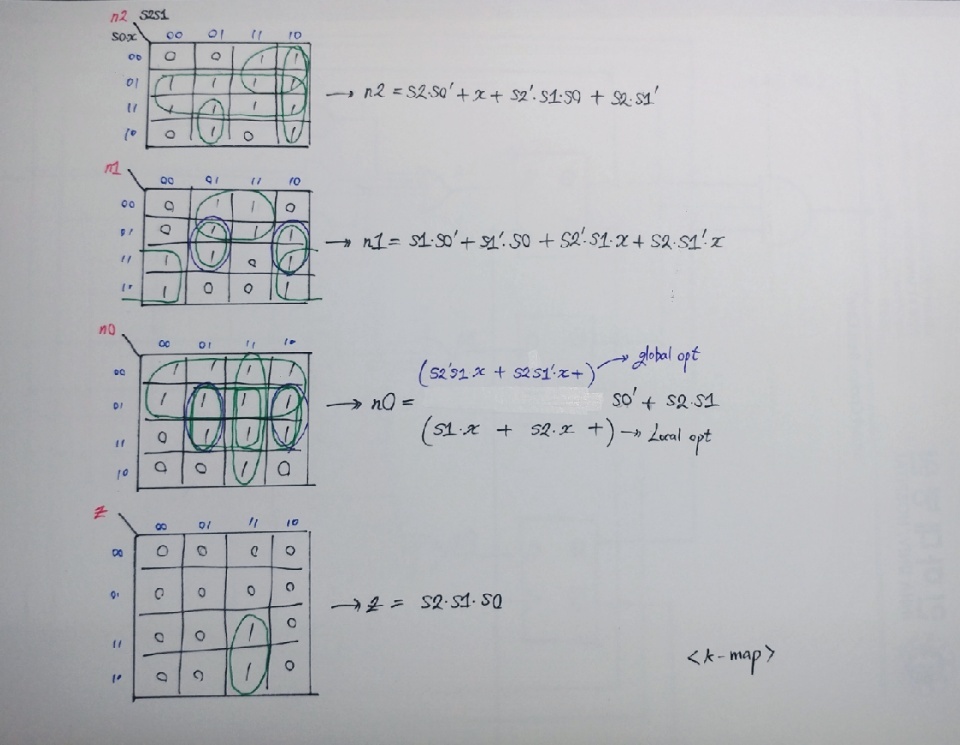 n2 S2S1
S0x 00 01 11 10
00 0 0 1 1
01 1 1 1 1
11 1 1 1 1
10 0 1 0 1
→ n2 = S2·S0' + x + S2'·S1·S0 + S2·S1'
n1
00 01 11 10
00 0 1 1 0
01 0 1 1 1
11 1 1 0 1
10 1 0 0 1
→ n1 = S1·S0' + S1'·S0 + S2'·S1·x + S2·S1'·x
n0
00 01 11 10
00 1 1 1 1
01 1 1 1 1
11 0 1 1 1
10 0 0 1 0
(S2'S1x + S2S1'·x+) → global opt
→ n0 = S0' + S2·S1
(S1·x + S2·x +) → Local opt
z
00 01 11 10
00 0 0 0 0
01 0 0 0 0
11 0 0 1 0
10 0 0 1 0
→ z = S2·S1·S0
<k-map>